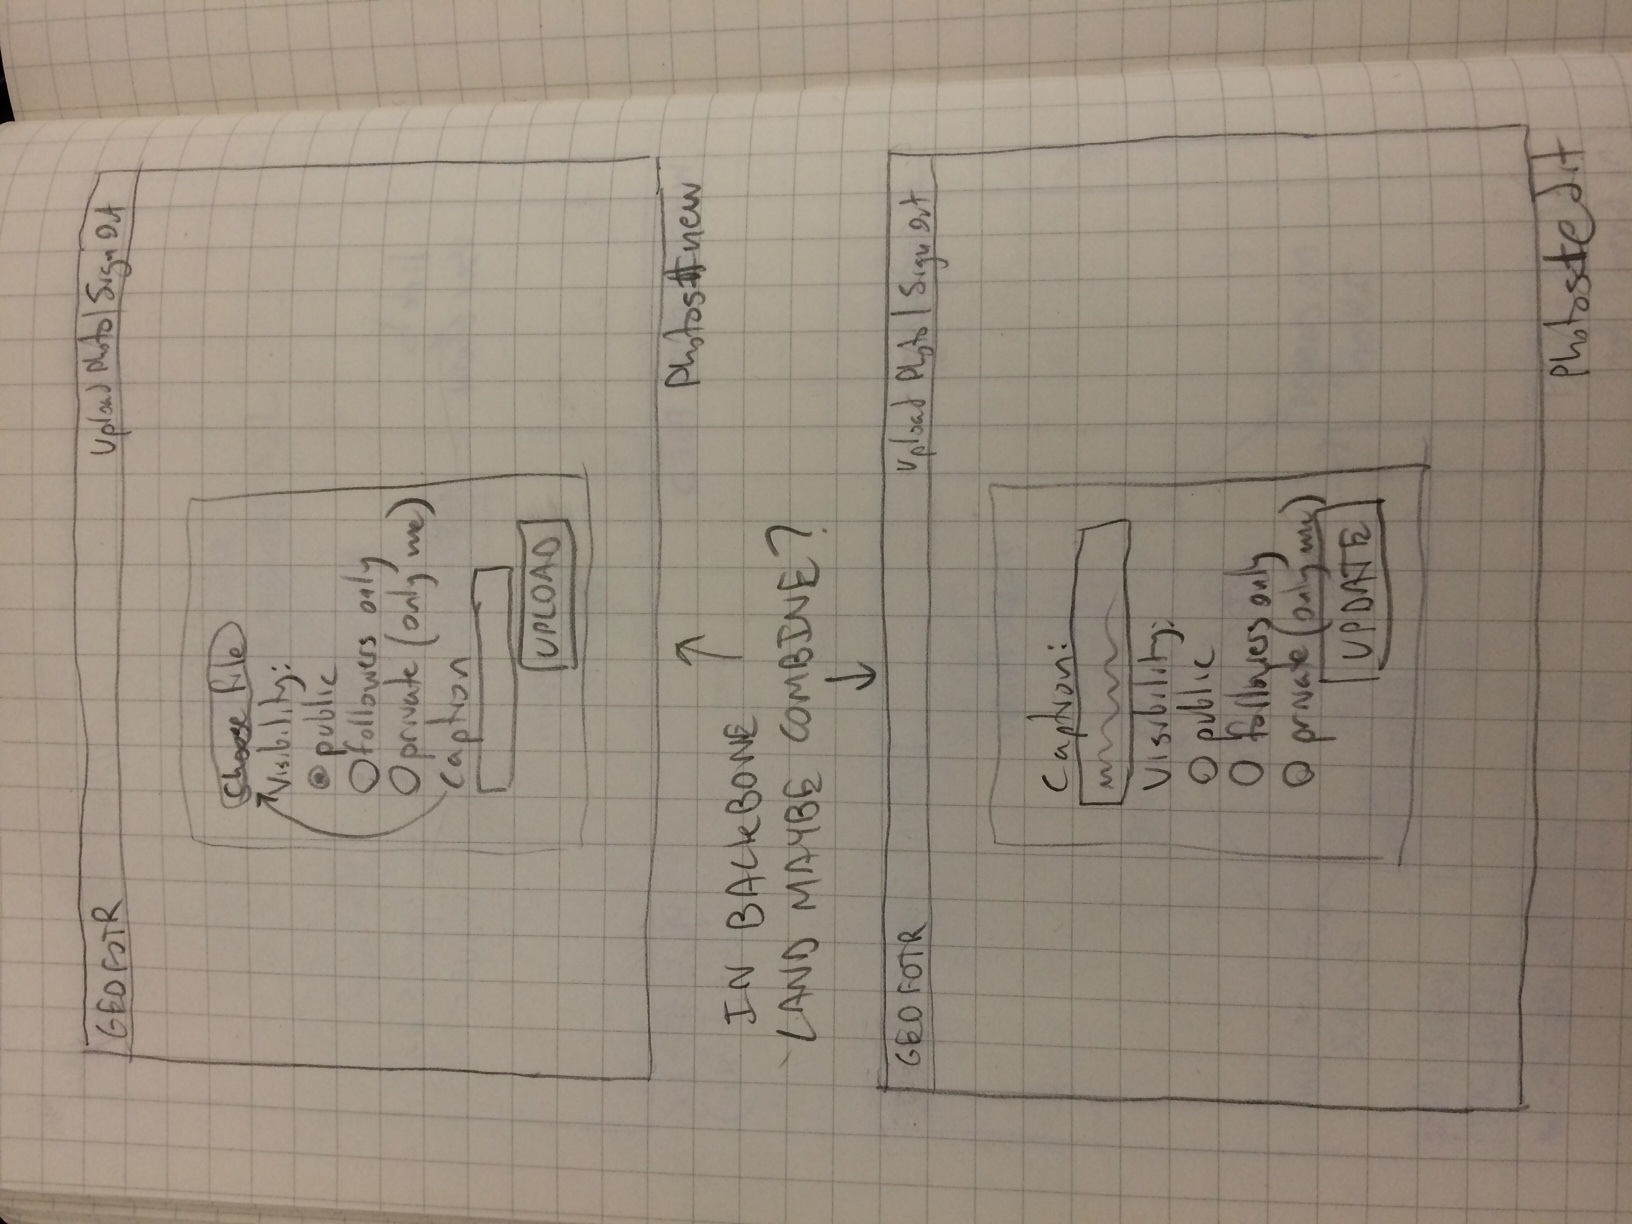 GEOFOTR Upload Photo | Sign Out
Choose File
Visibility:
public
followers only
private (only me)
Caption
UPLOAD
Photos#new
IN BACKBONE
LAND MAYBE COMBINE?
GEOFOTR Upload Photo | Sign Out
Caption:
Visibility:
public
followers only
private (only me)
UPDATE
Photos#edit